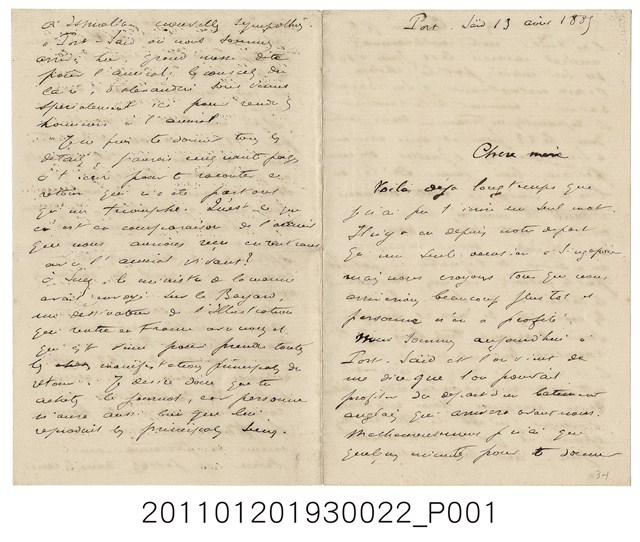 Port. Saïd 13 août 1885
Chère mère
Voilà déjà longtemps que
je n'ai pu t'écrire un seul mot.
Il n'y a eu depuis notre départ
qu'un seul occasion à Singapour
mais nous croyons tous que nous
arriverions beaucoup plus tôt et
personne n'en a profité.
Nous sommes aujourd'hui à
Port. Saïd et l'on vient de
me dire que l'on pouvait
profiter du départ d'un bâtiment
anglais qui arrivera avant nous.
Malheureusement je n'ai que
quelques minutes pour te donner
34
à Ismaïlia nouvelle sympathie
à Port-Saïd où nous sommes
arrivés hier, grand messe dite
pour l'amiral, les consuls du
Caire, d'Alexandrie sont venus
spécialement ici pour rendre
honneur à l'amiral.
Je ne puis te donner tous les
détails, j'aurais cinquante pages
à t'écrire pour te raconter ce
retour qui n'a été partout
qu'un triomphe. Qu'est-ce que
c'est en comparaison de l'accueil
que nous aurions reçu en rentrant
avec l'amiral vivant?
à Suez, le ministre de la marine
avait envoyé sur le Bayard,
un dessinateur de l'Illustration
qui rentre en France avec nous et
qui est venu pour prendre toutes
les manifestations principales du
retour. Je désire donc que tu
achètes le journal, car personne
n'aura aussi bien que lui
reproduit les principales scènes.
201101201930022_P001